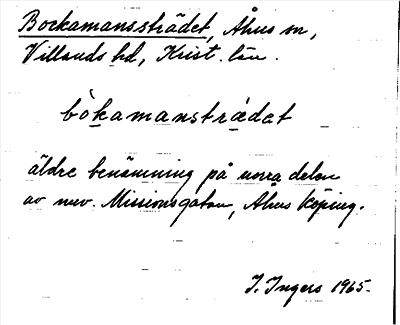 Bockamanssträdet, Åhus sn,
Villands hd, Krist. län.
bòkamanstrædet
äldre benämning på norra delen
av nuv. Missionsgatan, Åhus köping.
I. Ingers 1965.